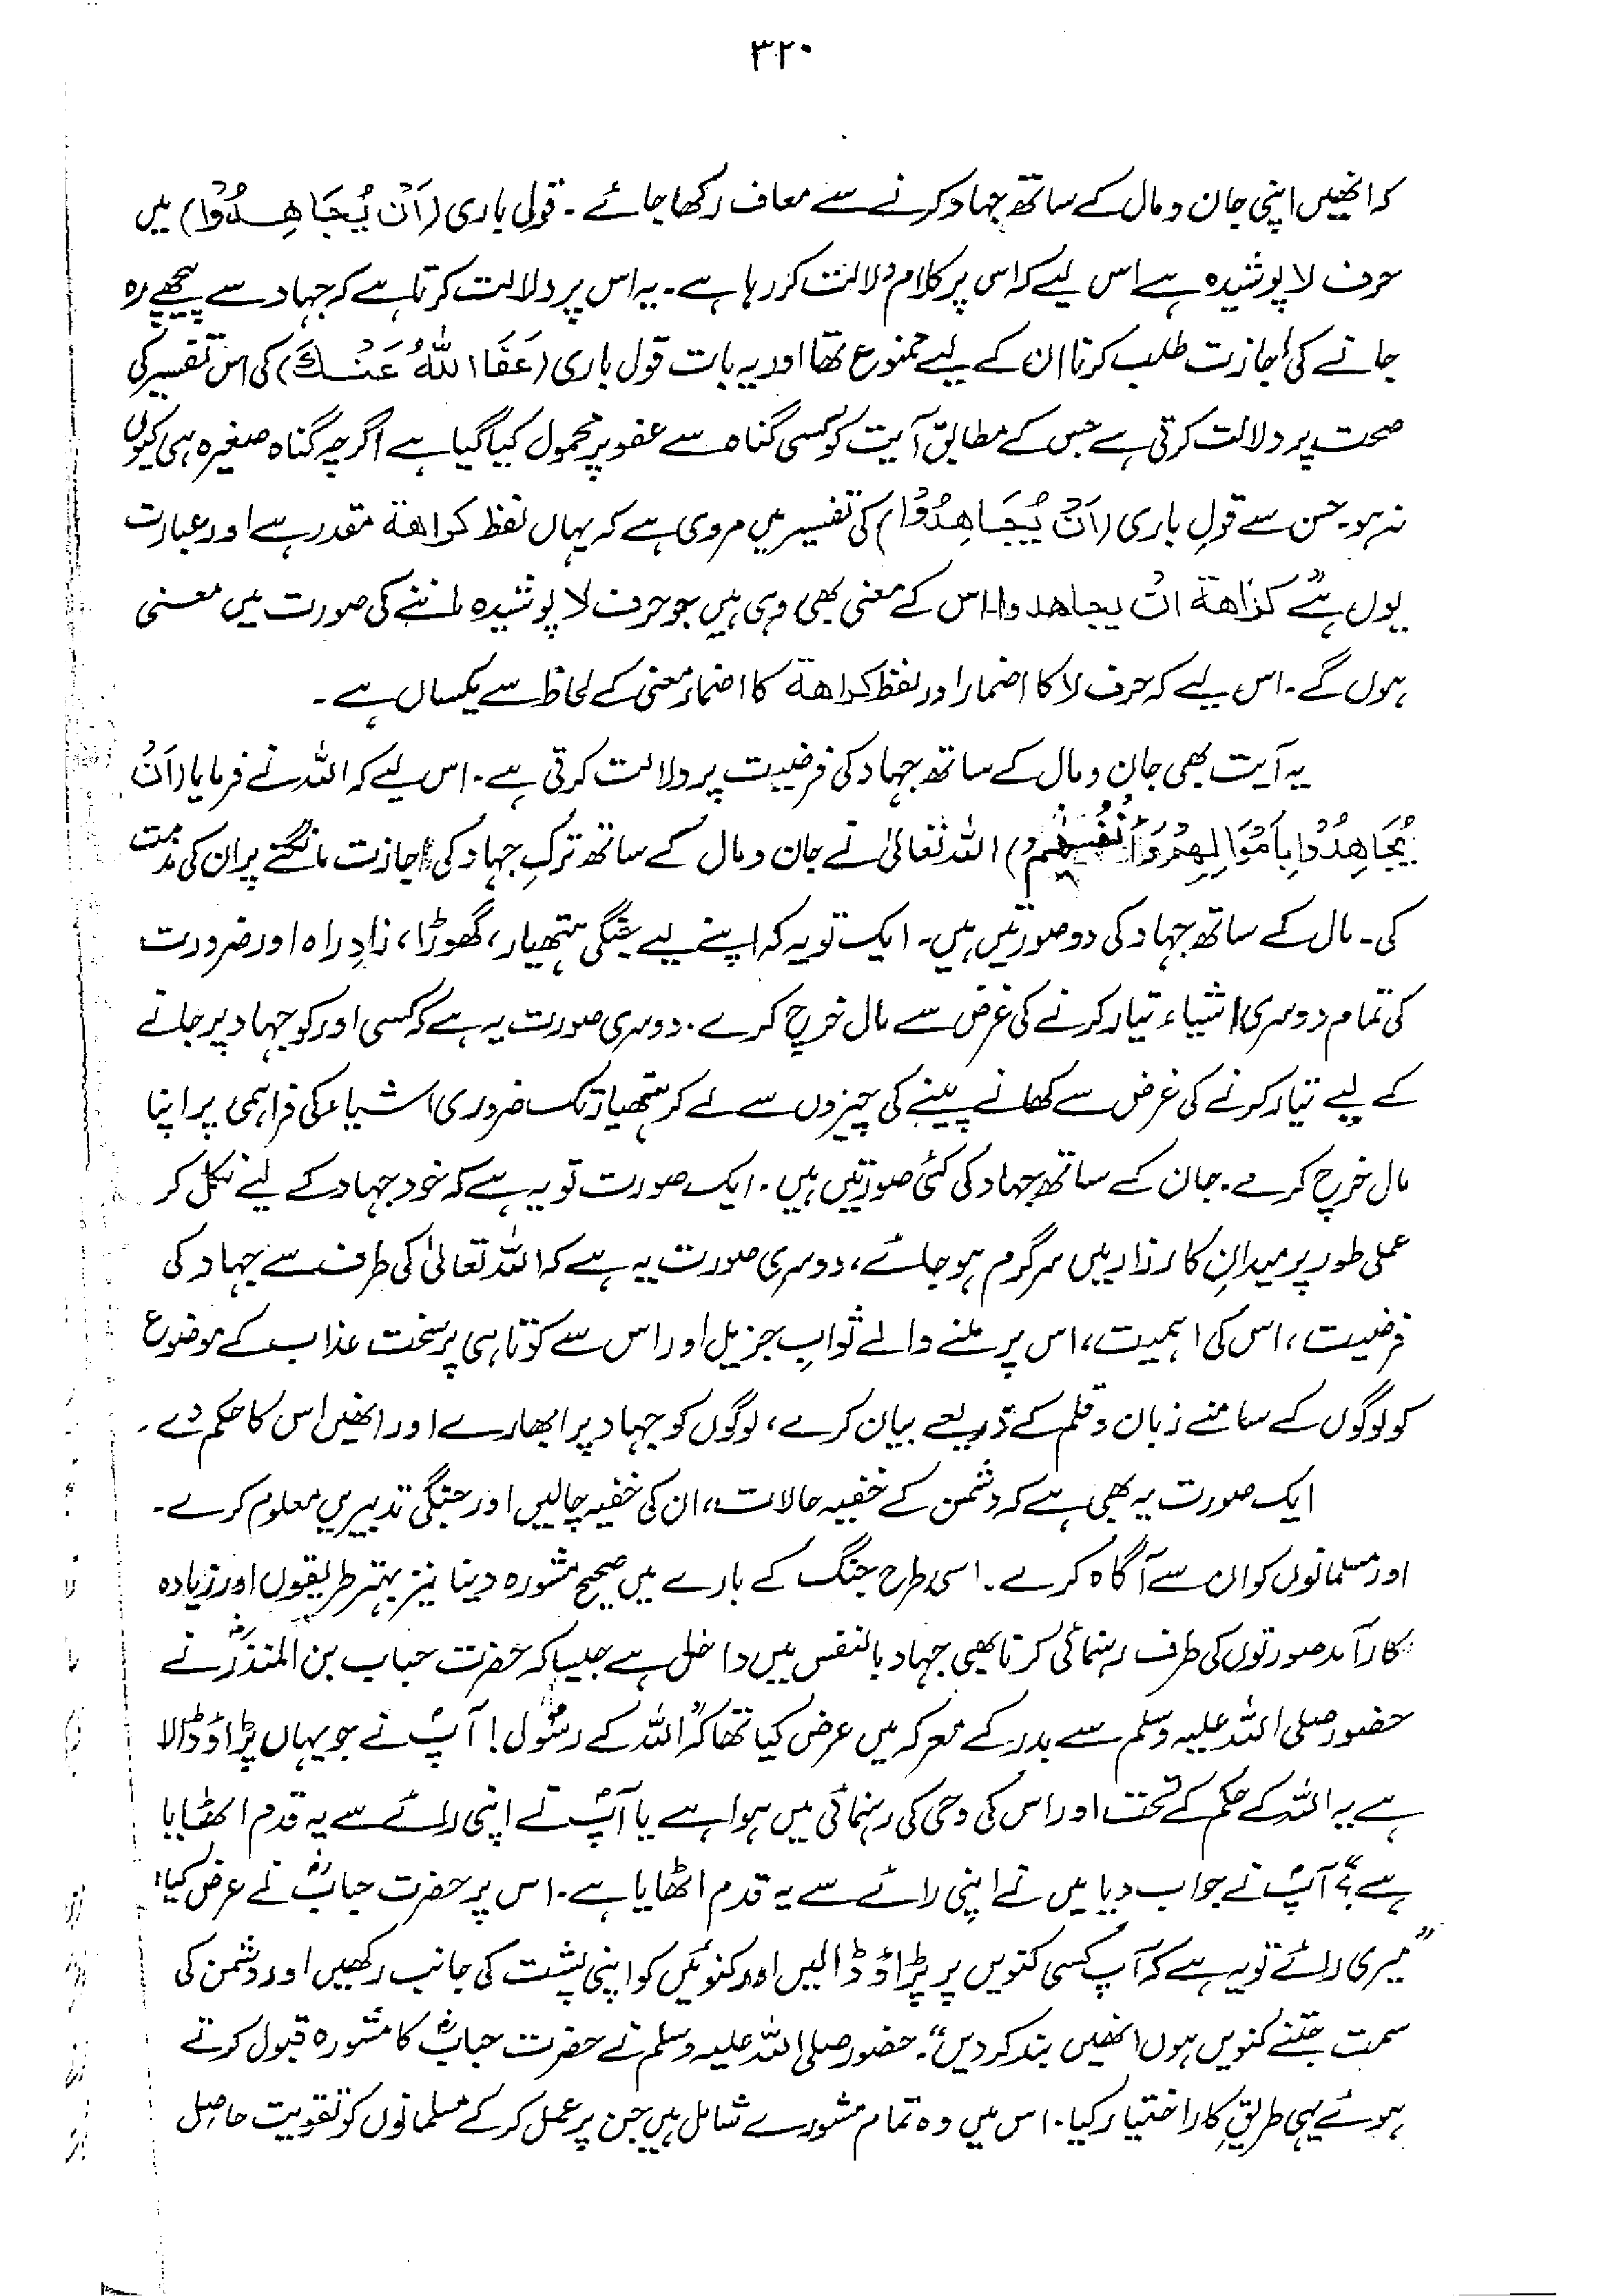 ۳۲۰
کہ انھیں اپنی جان و مال کے ساتھ جہاد کرنے سے معاف رکھا جائے۔ قولِ باری (اَنْ يُّجَاهِدُوْا) میں
حرف لا پوشیدہ ہے اس لیے کہ اس پر کلام دلالت کر رہا ہے۔ یہ اس پر دلالت کرتا ہے کہ جہاد سے پیچھے رہ
جانے کی اجازت طلب کرنا ان کے لیے ممنوع تھا اور یہ بات قول باری (عَفَا اللّٰهُ عَنْكَ) کی اس تفسیر کی
صحت پر دلالت کرتی ہے جس کے مطابق آیت کو کسی گناہ سے عفو پر محمول کیا گیا ہے اگرچہ گناہ صغیرہ ہی کیوں
نہ ہو۔ حسن سے قولِ باری (اَنْ يُّجَاهِدُوْا) کی تفسیر میں مروی ہے کہ یہاں لفظ کراھة مقدر ہے اور عبارت
یوں ہے "کراھة ان یجاھدوا" اس کے معنی بھی وہی ہیں جو حرف لا پوشیدہ ماننے کی صورت میں معنی
ہوں گے۔ اس لیے کہ حرف لا کا اضمار اور لفظ کراھة کا اضمار معنی کے لحاظ سے یکساں ہے۔
یہ آیت بھی جان و مال کے ساتھ جہاد کی فرضیت پر دلالت کرتی ہے۔ اس لیے کہ اللہ نے فرمایا (اَنْ
يُّجَاهِدُوْا بِاَمْوَالِهِمْ وَاَنْفُسِهِمْ) اللہ تعالیٰ نے جان و مال کے ساتھ ترکِ جہاد کی اجازت مانگنے پر ان کی مذمت
کی۔ مال کے ساتھ جہاد کی دو صورتیں ہیں۔ ایک تو یہ کہ اپنے لیے جنگی ہتھیار، گھوڑا، زادِ راہ اور ضرورت
کی تمام دوسری اشیاء تیار کرنے کی غرض سے مال خرچ کرے۔ دوسری صورت یہ ہے کہ کسی اور کو جہاد پر جانے
کے لیے تیار کرنے کی غرض سے کھانے پینے کی چیزوں سے لے کر ہتھیار تک ضروری اشیاء کی فراہمی پر اپنا
مال خرچ کرے۔ جان کے ساتھ جہاد کی کئی صورتیں ہیں۔ ایک صورت تو یہ ہے کہ خود جہاد کے لیے نکل کر
عملی طور پر میدانِ کارزار میں سرگرم ہو جائے، دوسری صورت یہ ہے کہ اللہ تعالیٰ کی طرف سے جہاد کی
فرضیت، اس کی اہمیت، اس پر ملنے والے ثوابِ جزیل اور اس سے کوتاہی پر سخت عذاب کے موضوع
کو لوگوں کے سامنے زبان و قلم کے ذریعے بیان کرے، لوگوں کو جہاد پر ابھارے اور انھیں اس کا حکم دے۔
ایک صورت یہ بھی ہے کہ دشمن کے خفیہ حالات، ان کی خفیہ چالیں اور جنگی تدبیریں معلوم کرے۔
اور مسلمانوں کو ان سے آگاہ کرے۔ اسی طرح جنگ کے بارے میں صحیح مشورہ دینا نیز بہتر طریقوں اور زیادہ
کارآمد صورتوں کی طرف رہنمائی کرنا بھی جہاد بالنفس میں داخل ہے جیسا کہ حضرت حباب بن المنذرؓ نے
حضور صلی اللہ علیہ وسلم سے بدر کے معرکہ میں عرض کیا تھا کہ "اللہ کے رسولؐ! آپؐ نے جو یہاں پڑاؤ ڈالا
ہے یہ اللہ کے حکم کے تحت اور اس کی وحی کی رہنمائی میں ہوا ہے یا آپؐ نے اپنی رائے سے یہ قدم اٹھایا
ہے؟" آپؐ نے جواب دیا میں نے اپنی رائے سے یہ قدم اٹھایا ہے۔ اس پر حضرت حبابؓ نے عرض کیا:
"میری رائے تو یہ ہے کہ آپ کسی کنویں پر پڑاؤ ڈالیں اور کنوئیں کو اپنی پشت کی جانب رکھیں اور دشمن کی
سمت جتنے کنویں ہوں انھیں بند کر دیں"۔ حضور صلی اللہ علیہ وسلم نے حضرت حبابؓ کا مشورہ قبول کرتے
ہوئے یہی طریقِ کار اختیار کیا۔ اس میں وہ تمام مشورے شامل ہیں جن پر عمل کر کے مسلمانوں کو تقویت حاصل